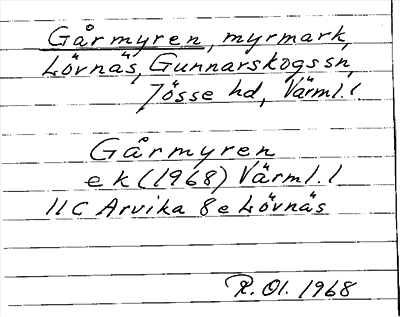 Gårmyren, myrmark,
Lövnäs, Gunnarskogssn,
Jösse hd, Värml. l.
Gårmyren
ek (1968) Värml. l
11C Arvika 8e Lövnäs
R. Ol. 1968